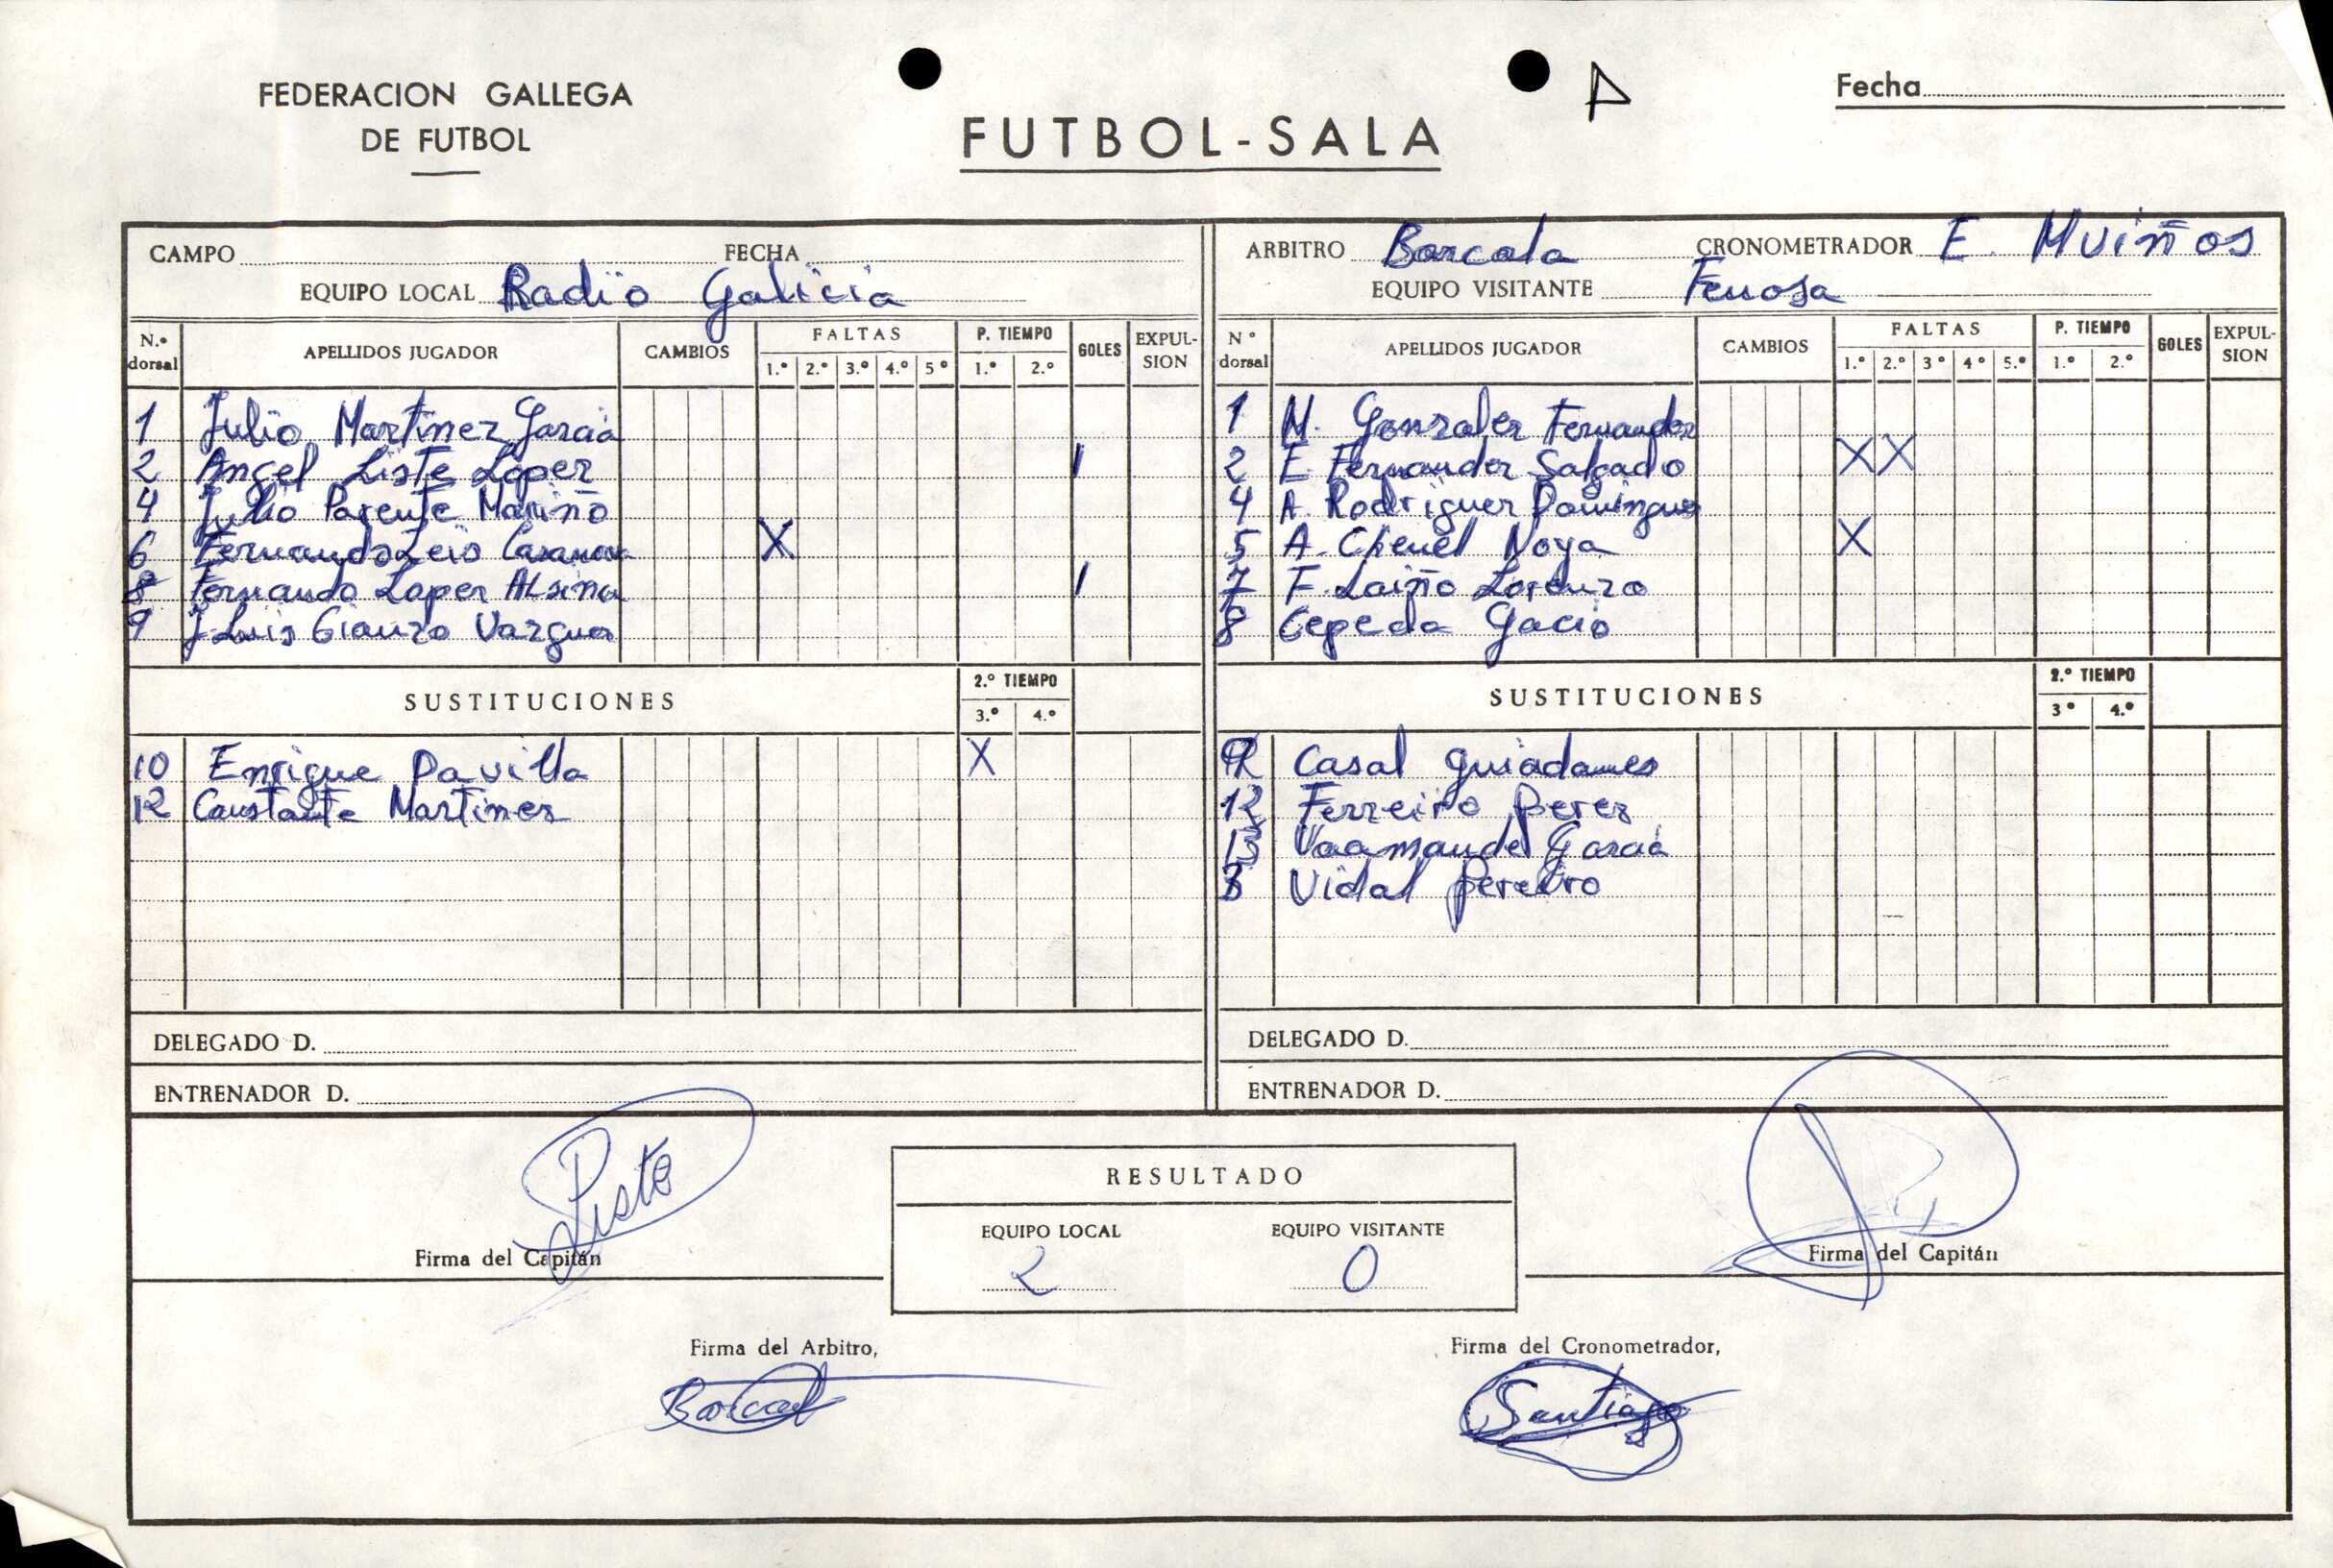 FEDERACION GALLEGA
DE FUTBOL
FUTBOL-SALA
Fecha
CAMPO FECHA
EQUIPO LOCAL Radio Galicia
N.º dorsal APELLIDOS JUGADOR CAMBIOS FALTAS 1.º 2.º 3.º 4.º 5º P. TIEMPO 1.º 2.º GOLES EXPULSION
1 Julio Martinez Garcia
2 Angel Liste Loper 1
4 Julio Parente Mariño
6 Fernando Leis Casanova X
8 Fernando Loper Alsina 1
9 J. Luis Gianzo
SUSTITUCIONES 2.º TIEMPO 3.º 4.º
10 Enrique Davilla X
12 Constante Martines
DELEGADO D.
ENTRENADOR D.
ARBITRO Barcala CRONOMETRADOR E. Muiños
EQUIPO VISITANTE Fenosa
Nº dorsal APELLIDOS JUGADOR CAMBIOS FALTAS 1.º 2.º 3º 4º 5.º P. TIEMPO 1.º 2.º GOLES EXPULSION
1 M. Gonzalez Fernandez
2 E. Fernandez Salgado X X
4 A. Rodriguez Dominguez
5 A. Chenel Noya X
7 F. Laiño Lorenzo
8 Cepeda Gacio
SUSTITUCIONES 2.º TIEMPO 3º 4.º
Casal Guiadames
12 Ferreiro Perez
13 Vaamonde Garcia
3 Vidal Pereiro
DELEGADO D.
ENTRENADOR D.
Liste
Firma del Capitán
RESULTADO
EQUIPO LOCAL EQUIPO VISITANTE
2 0
Firma del Capitán
Firma del Arbitro,
Firma del Cronometrador,
Santiago